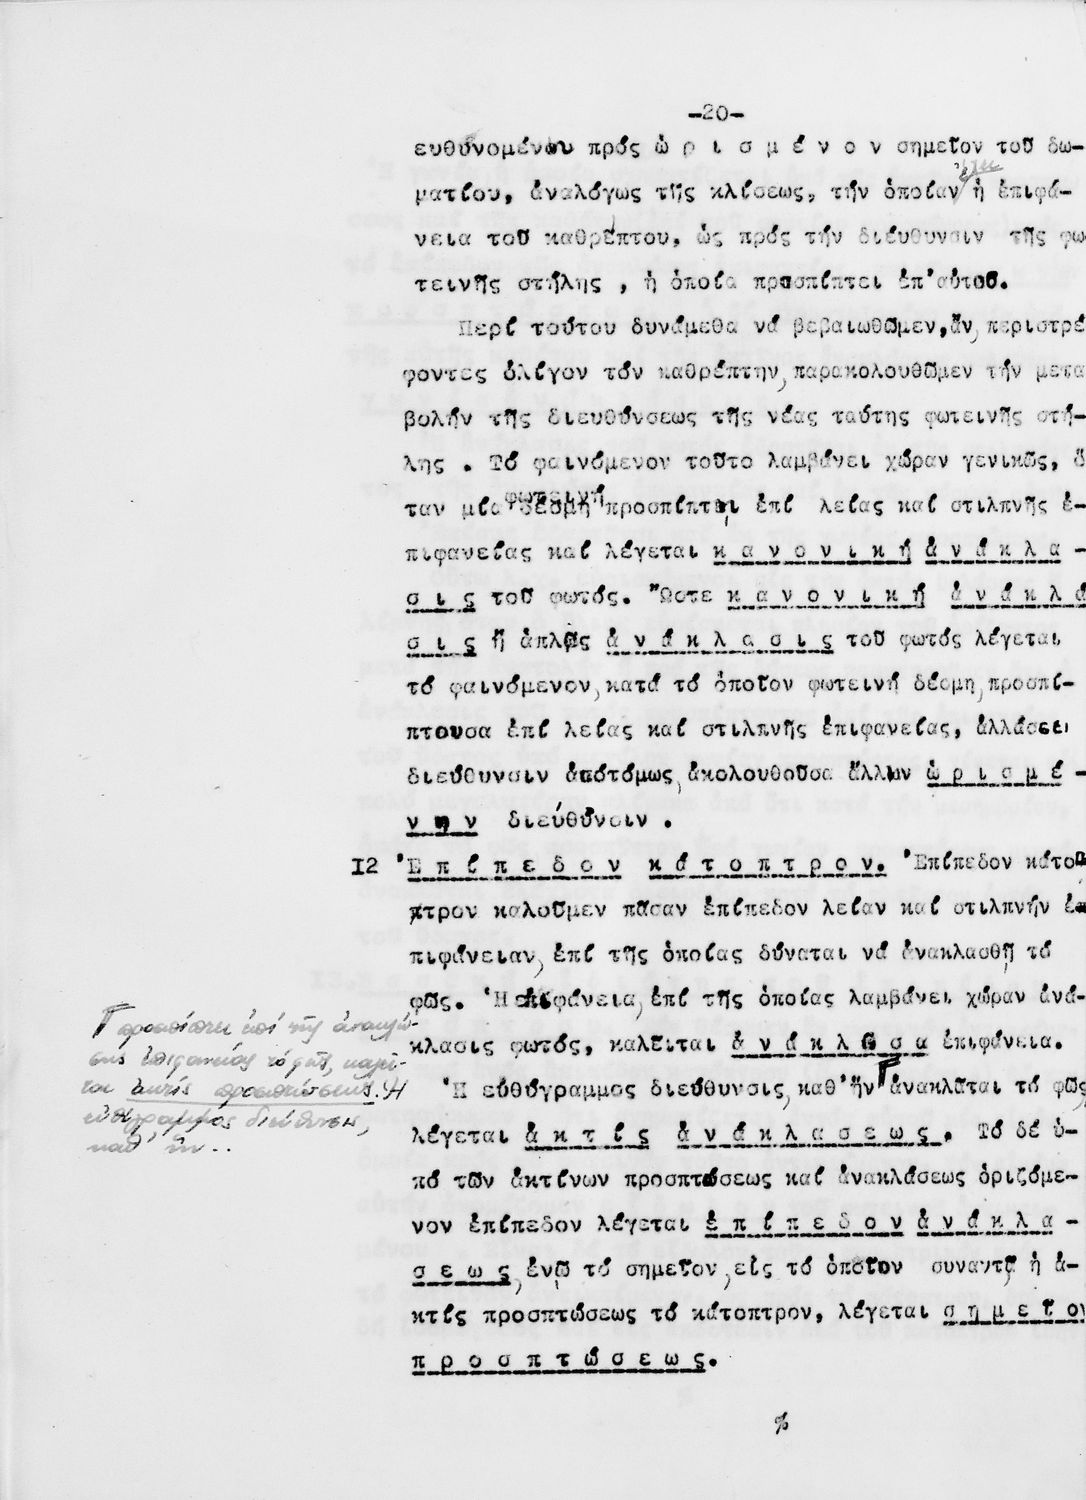 -20-
εὐθυνομένου πρός ὡ ρ ι σ μ έ ν ο ν σημεῖον τοῦ δω-
ἔχει
ματίου, ἀναλόγως τῆς κλίσεως, τήν ὁποίαν ἡ ἐπιφά-
νεια τοῦ καθρέπτου, ὡς πρός τήν διεύθυνσιν τῆς φω
τεινῆς στήλης , ἡ ὁποία προσπίπτει ἐπ'αὐτοῦ.
Περί τούτου δυνάμεθα νά βεβαιωθῶμεν,ἄν, περιστρέ
φοντες ὀλίγον τόν καθρέπτην, παρακολουθῶμεν τήν μετα
βολήν τῆς διευθύνσεως τῆς νέας ταύτης φωτεινῆς στή-
λης . Τό φαινόμενον τοῦτο λαμβάνει χώραν γενικῶς, ὅ
φωτεινή
ταν μία δέσμη προσπίπτει ἐπί λείας καί στιλπνῆς ἐ-
πιφανείας καί λέγεται κ α ν ο ν ι κ ή ἀ ν ά κ λ α -
σ ι ς τοῦ φωτός. Ὥστε κ α ν ο ν ι κ ή ἀ ν ά κ λ α
σ ι ς ἤ ἁπλῶς ἀ ν ά κ λ α σ ι ς τοῦ φωτός λέγεται
τό φαινόμενον, κατά τό ὁποῖον φωτεινή δέσμη, προσπί-
πτουσα ἐπί λείας καί στιλπνῆς ἐπιφανείας, ἀλλάσσει
διεύθυνσιν ἀποτόμως, ἀκολουθοῦσα ἄλλην ὡ ρ ι σ μ έ -
ν η ν διεύθυνσιν .
12 Ἐ π ί π ε δ ο ν κ ά τ ο π τ ρ ο ν. Ἐπίπεδον κάτο
πτρον καλοῦμεν πᾶσαν ἐπίπεδον λείαν καί στιλπνήν ἐ-
πιφάνειαν, ἐπί τῆς ὁποίας δύναται νά ἀνακλασθῇ τό
φῶς. Ἡ ἐπιφάνεια, ἐπί τῆς ὁποίας λαμβάνει χώραν ἀνά-
κλασις φωτός, καλεῖται ἀ ν α κ λ ῶ σ α ἐπιφάνεια.
Ἡ εὐθύγραμμος διεύθυνσις, καθ'ἥν Γ ἀνακλᾶται τό φῶς
λέγεται ἀ κ τ ί ς ἀ ν α κ λ ά σ ε ω ς. Τό δέ ὑ-
πό τῶν ἀκτίνων προσπτώσεως καί ἀνακλάσεως ὁριζόμε-
νον ἐπίπεδον λέγεται ἐ π ί π ε δ ο ν ἀ ν α κ λ ά -
σ ε ω ς, ἐνῷ τό σημεῖον, εἰς τό ὁποῖον συναντᾷ ἡ ἀ-
κτίς προσπτώσεως τό κάτοπτρον, λέγεται σ η μ ε ῖ ο ν
π ρ ο σ π τ ώ σ ε ω ς.
Γ προσπίπτει ἐπί τῆς ἀνακλώ-
σης ἐπιφανείας τό φῶς, καλεῖ-
ται ἀκτίς προσπτώσεως. Ἡ
εὐθύγραμμος διεύθυνσις,
καθ' ἥν ..
%